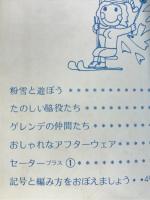 粉雪と遊ぼう
たのしい脇役たち
ゲレンデの仲間たち
おしゃれなアフターウェア
セータープラス①
記号と編み方をおぼえましょう